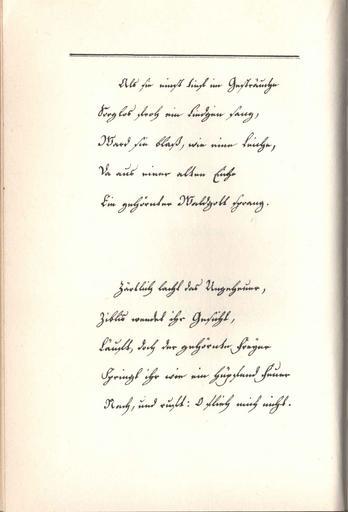 Als sie einst tief im Gesträuche
Sorglos froh ein Liedgen sang,
Ward sie blaß, wie eine Leiche,
Da aus einer alten Eiche
Ein gehörnter Waldgott sprang.
Zärtlich lacht das Ungeheuer,
Ziblis wendet ihr Gesicht,
Läuft, doch der gehörnte Freyer
Springt ihr wie ein hüpfend Feuer
Nach, und ruft: O flieh mich nicht.